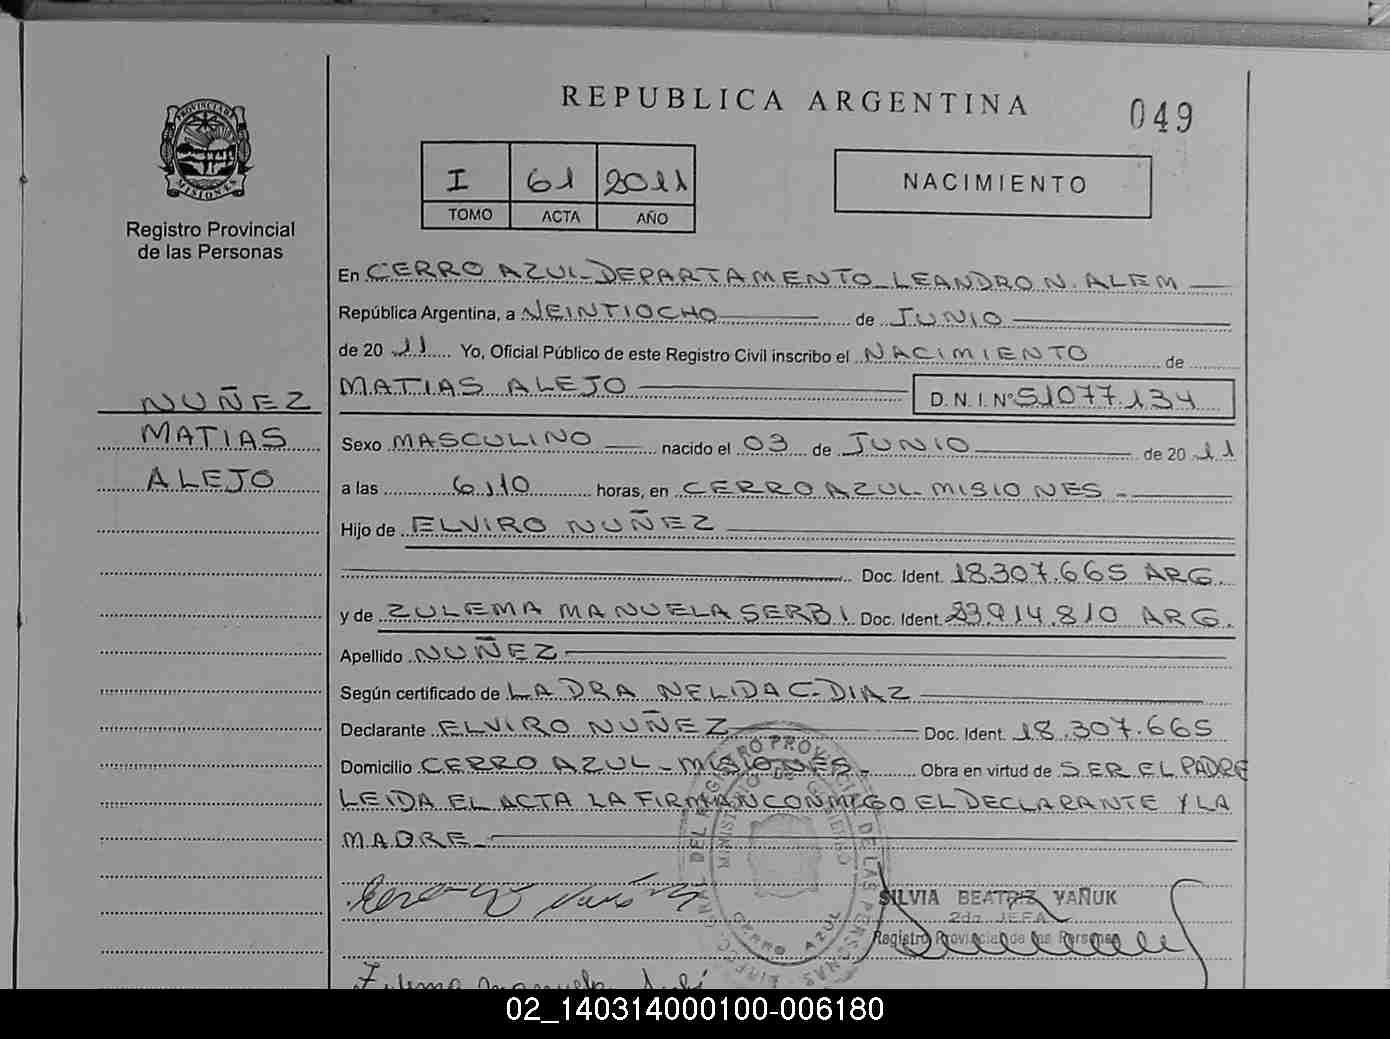 REPUBLICA ARGENTINA
049
PROVINCIA DE
MISIONES
Registro Provincial
de las Personas
I 61 2011
TOMO ACTA AÑO
NACIMIENTO
En CERRO AZUL-DEPARTAMENTO LEANDRO N. ALEM
República Argentina, a VEINTIOCHO de JUNIO
de 20 11 Yo, Oficial Público de este Registro Civil inscribo el NACIMIENTO de
MATIAS ALEJO D.N.I.Nº 51077.134
NUÑEZ
MATIAS
ALEJO
Sexo MASCULINO nacido el 03 de JUNIO de 20 11
a las 6,10 horas, en CERRO AZUL-MISIONES-
Hijo de ELVIRO NUÑEZ
Doc. Ident. 18.307.665 ARG.
y de ZULEMA MANUELA SERBI Doc. Ident. 23.914.810 ARG.
Apellido NUÑEZ
Según certificado de LA DRA NELIDA C. DIAZ
Declarante ELVIRO NUÑEZ Doc. Ident. 18.307.665
Domicilio CERRO AZUL-MISIONES- Obra en virtud de SER EL PADRE
LEIDA EL ACTA LA FIRMAN CONMIGO EL DECLARANTE Y LA
MADRE-
DEL REGISTRO PROVINCIAL DE LAS PERSONAS
MINISTERIO DE GOBIERNO
CERRO AZUL
SILVIA BEATRIZ YAÑUK
2da JEFA
Registro Provincial de las Personas
Zulema Manuela Serbi
02_140314000100-006180